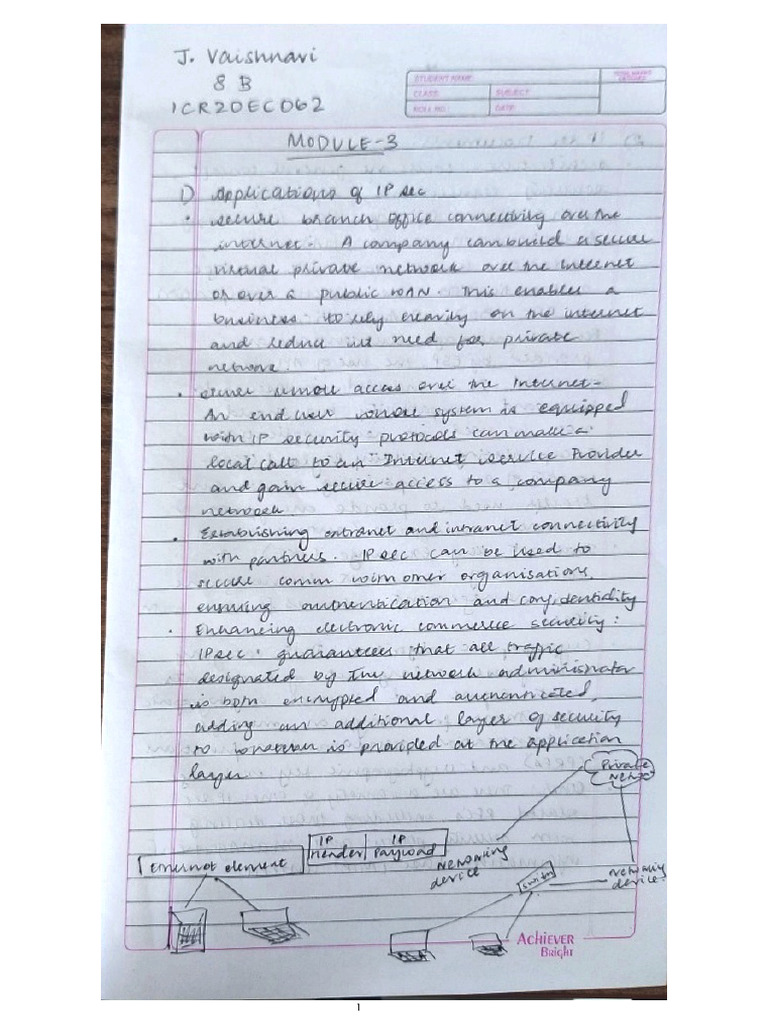 J. Vaishnavi
8 B
1CR20EC062
STUDENT NAME:
TOTAL MARKS
CLASS:
SUBJECT:
ROLL NO:
DATE:
MODULE-3
1) Applications of IP sec
• secure branch office connectivity over the
internet: A company can build a secure
virtual private network over the Internet
or over a public WAN. This enables a
business to rely heavily on the internet
and reduce its need for private
network
• secure remote access over the Internet-
An end user whose system is equipped
with IP security protocols can make a
local call to an Internet service Provider
and gain secure access to a company
network
• Establishing extranet and intranet connectivity
with partners. IPsec can be used to
secure comm with other organisations,
ensuring authentication and confidentiality
• Enhancing electronic commerce security:
IPsec guarantees that all traffic
designated by the network administrator
is both encrypted and authenticated,
adding an additional layer of security
to whatever is provided at the application
layer.
Private
Netwo
IP Header
IP Payload
Ethernet element
Networking device
Switch
Networking device
ACHIEVER
Bright
1